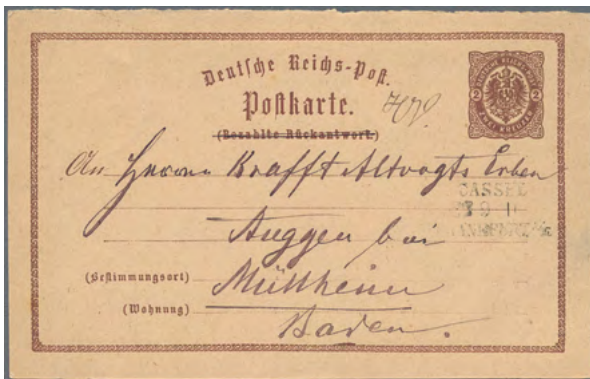 Deutsche Reichs-Post.
Postkarte.
(Bezahlte Rückantwort.)
2 2
ZWEI KREUZER
An Herrn Krafft Altvogts Erben
CASSEL
Auggen bei
(Bestimmungsort) Müllheim
(Wohnung) Baden.